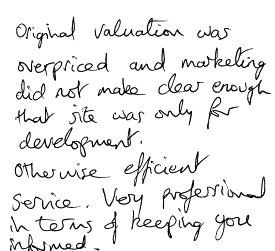 Original valuation was
overpriced and marketing
did not make clear enough
that site was only for
development.
Otherwise efficient
service. Very professional
in terms of keeping you
informed.